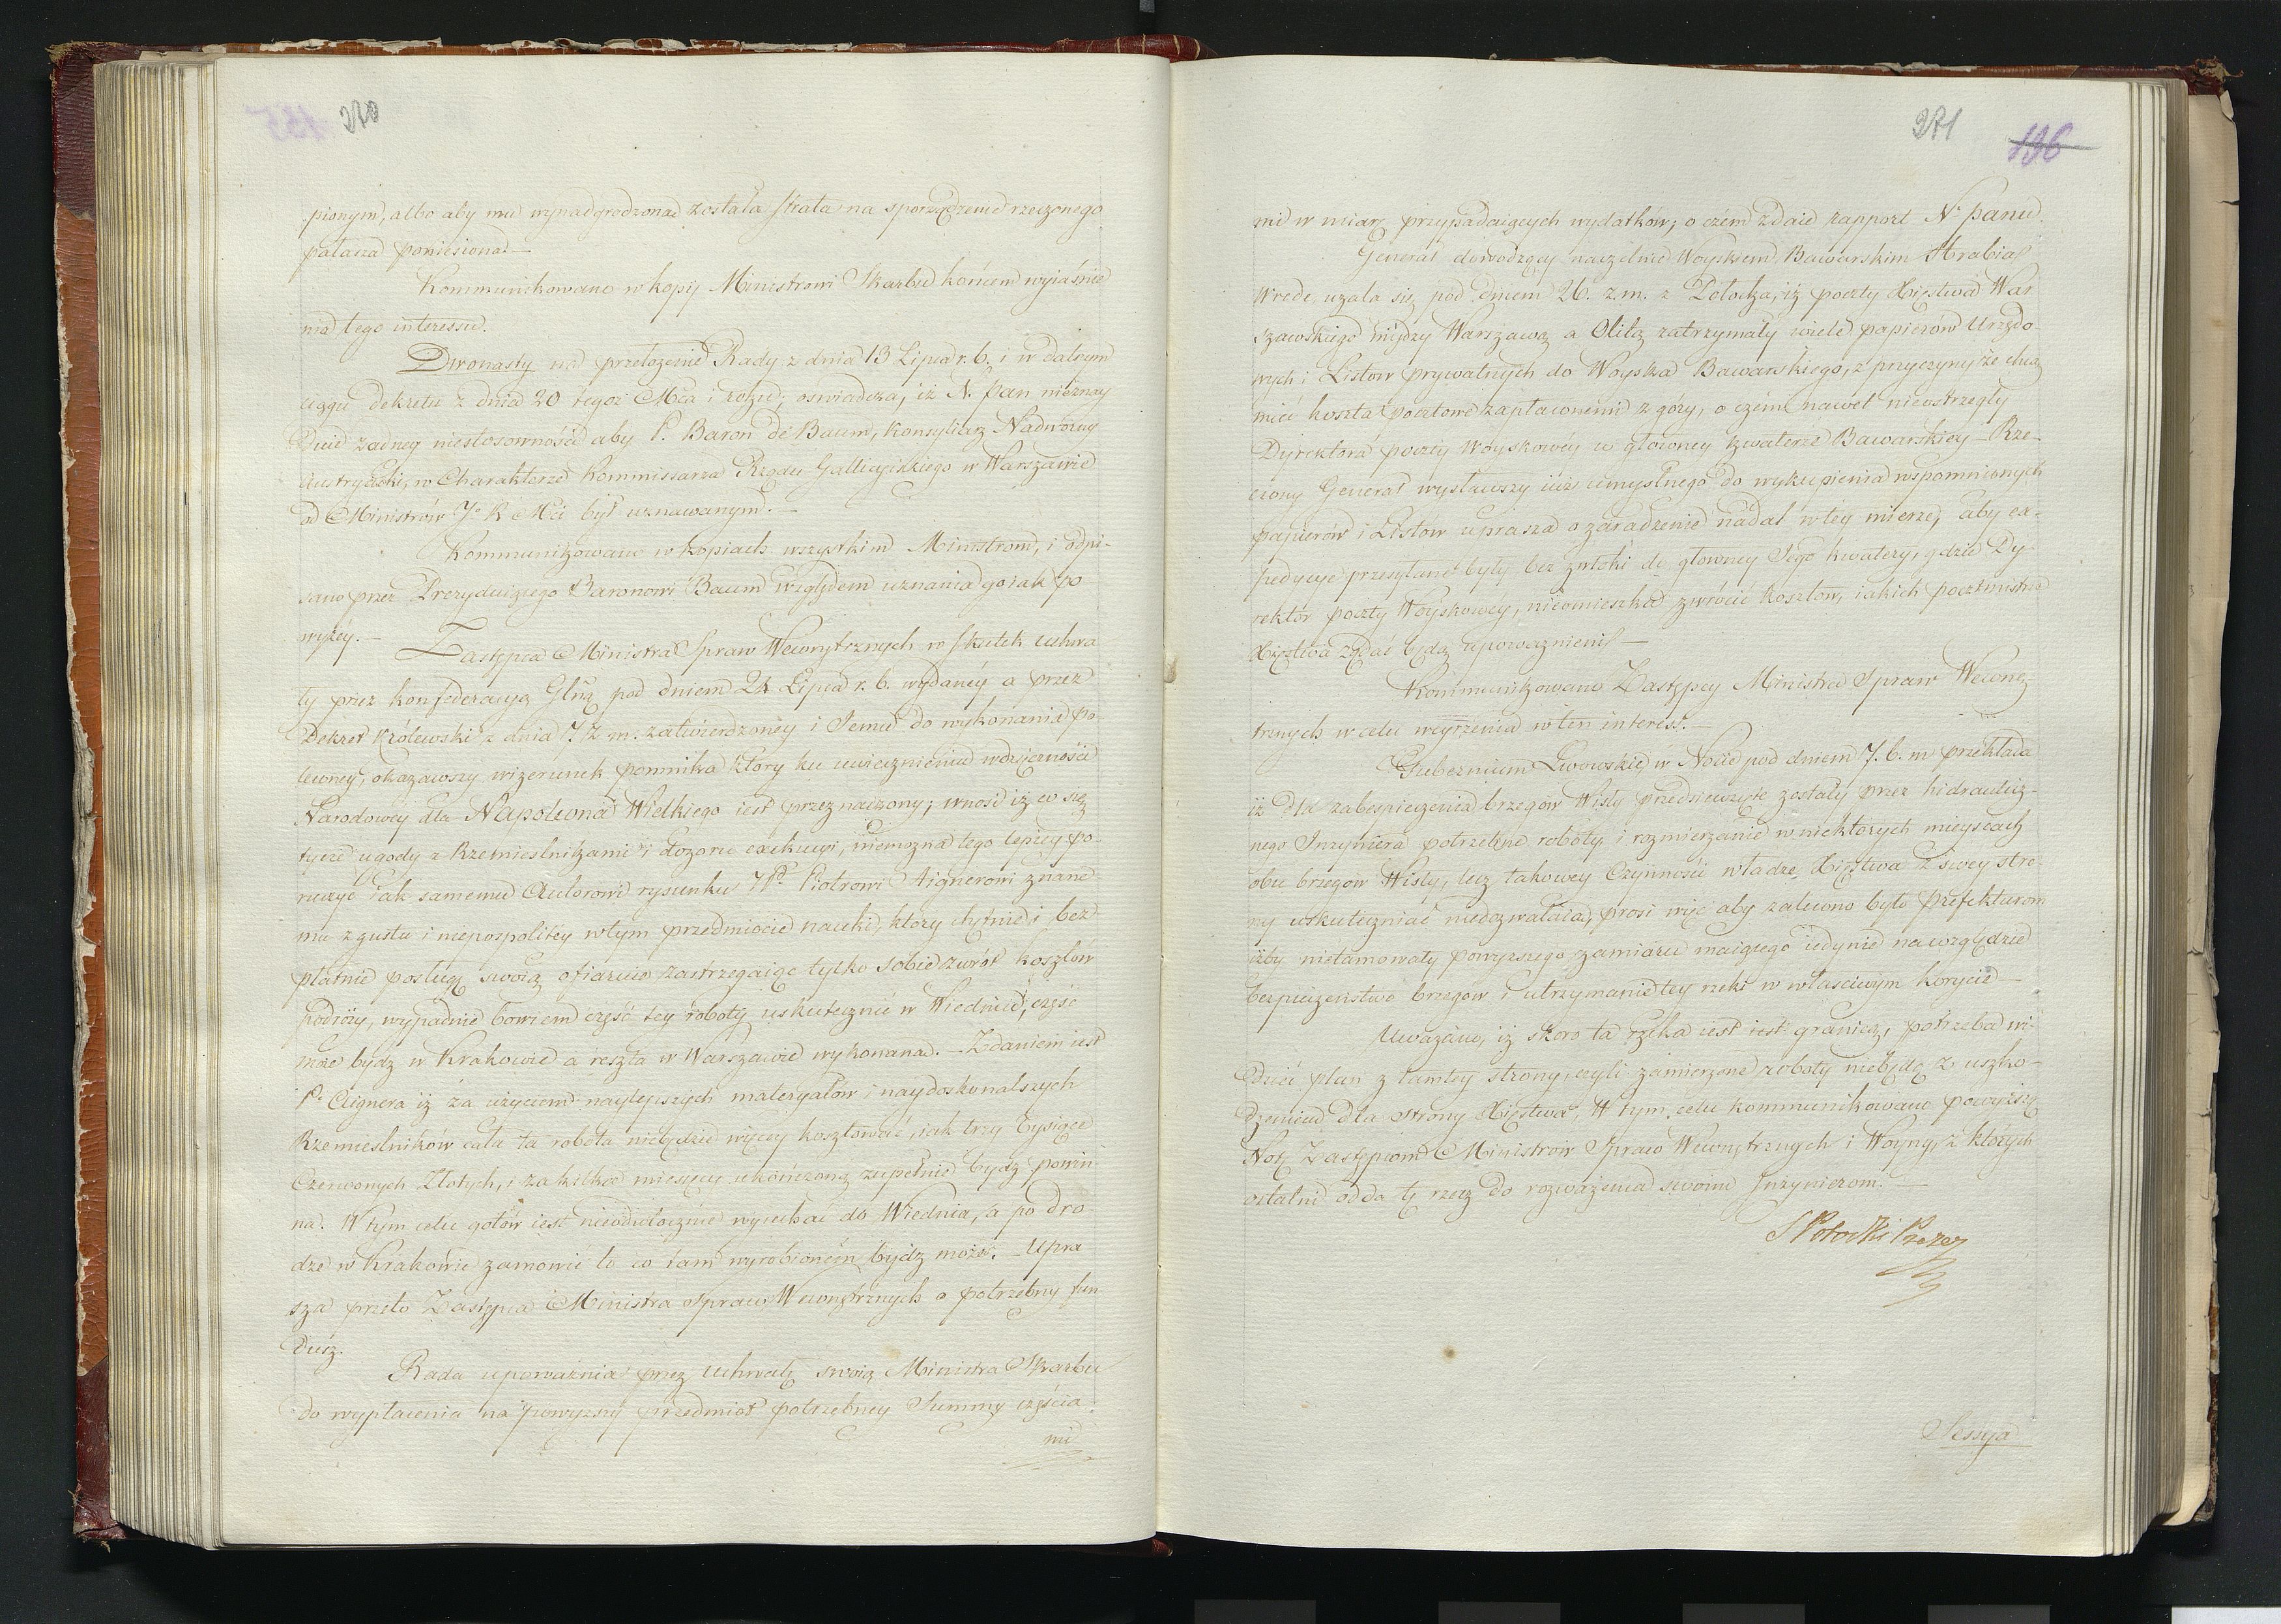 270
pionym, albo aby mu wynadgrodzona została strata na sporządzenie rzeczonego
pałasza poniesiona. —
Kommunikowano w kopij Ministrowi Skarbu końcem wyiaśnie
nia tego interessu.
Dwonasty na przełożenie Rady z dnia 13 Lipca r. b. i w dalszym
ciągu dekretu z dnia 20 tegoż Mca i roku, oswiadcza, iż N. Pan nieznay
duie żadney niestosowności aby P. Baron de Baum, Konsyliarz Nadworny
Austryacki, w Charakterze Kommissarza Rządu Gallicyiskiego w Warszawie
od Ministrów J. K Mci był uznawanym. —
Kommunikowano w kopiach wszystkim Ministrom, i odpi-
sano przez Prezyduiącego Baronowi Baum względem uznania go iak po
wyżey. — Zastępca Ministra Spraw Wewnętrznych w skutek uchwa
ły przez konfederacyą Glną pod dniem 24 Lipca r. b. wydaney a przez
Dekret Królewski z dnia 7. z. m. zatwierdzoney i Jemu do wykonania po
leconey, okazawszy wizerunek pomnika który ku uwiecznieniu wdzięczności
Narodowey dla Napoleona Wielkiego iest przeznaczony; wnosi iż co się
tycze ugody z Rzemieslnikami i dozoru exekucyi, niemożna tego lepiey po-
ruczyć iak samemu Autorowi rysunku JP. Piotrowi Aignerowi znane
mu z gustu i niepospolitey w tym przedmiocie nauki, który chętnie i bez
płatnie posługę swoią ofiaruie zastrzegaiąc tylko sobie zwrót kosztów
podróży, wypadnie bowiem część tey roboty uskutecznić w Wiedniu, część
może bydz w Krakowie a reszta w Warszawie wykonana. — Zdaniem iest
P. Aignera iż za użyciem naylepszych materyałów i naydoskonalszych
Rzemieslników cała ta robota niebędzie więcey kosztować, iak trzy tysiące
Czerwonych Złotych, i za kilka miesięcy ukończoną zupełnie bydz powin
na. W tym celu gotów iest nieodwłocznie wyiechać do Wiednia, a po dro-
dze w Krakowie zamowić to co tam wyrobioném bydz może. — Upra
sza przeto Zastępca Ministra Spraw Wewnętrznych o potrzebny fun
dusz.
Rada upoważnia przez uchwałę swoią Ministra Skarbu
do wypłacenia na powyzszy przedmiot potrzebney Summy częścia-
mi
271
136
mi w miarę przypadaiących wydatków; o czém zdaie rapport N. Panu.
Generał dowodzący naczelnie Woyskiem Bawarskim Hrabia
Wrede użala się pod dniem 26. z. m. z Połocka, iż poczty Xięstwa War
szawskiego między Warszawą a Olitą zatrzymały wiele papierów Urzędo-
wych i Listow prywatnych do Woyska Bawarskiego, z przyczyny że chcą
mieć koszta pocztowe zapłaconemi z góry, o czém nawet nieostrzegły
Dyrektora poczty Woyskowéy w głowney kwaterze Bawarskiey — Rze-
czony Generał wysławszy iuż umyslnego do wykupienia wspomnionych
papierów i Listow uprasza o zaradzenie nadal w tey mierze, aby ex-
pedycye przesyłane były bez zwłoki do głowney Jego kwatery, gdzie Dy
rektór poczty Woyskowey, nieomieszka zwrócić kosztow, iakich pocztmistrze
Xięstwa żądać będą upoważnieni —
Kommunikowano Zastępcy Ministra Spraw Wewnę
trznych w celu weyrzenia w ten interess. —
Gubernium Lwowskie w Nocie pod dniem 7. b. m przekłada
iż dla zabespieczenia brzegow Wisły przedsięwzięte zostały przez hidraulicz-
nego Inzyniera potrzebne roboty i rozmierzanie w niektorych mieyscach
obu brzegow Wisły, lecz takowey czynności władze Xięstwa z swey stro
ny uskuteczniać niedozwalaią, prosi więc aby zalecono było Prefekturom
iżby nietamowały powyższego zamiaru maiącego iedynie na względzie
bezpieczeństwo brzegow i utrzymanie tey rzeki w właściwym korycie —
Uważano, iż skoro ta rzéka iest iest granicą, potrzeba wi-
dzieć plan z tamtey strony, czyli zamierzone roboty niebędą z uszko-
dzeniem dla strony Xięstwa, W tym celu kommunikowano powyższą
Notę Zastępcom Ministrow Spraw Wewnętrznych i Woyny, z których
ostatni odda tę rzecz do rozważenia swoim Inżynierom. —
S Potocki Prezez
Sessya